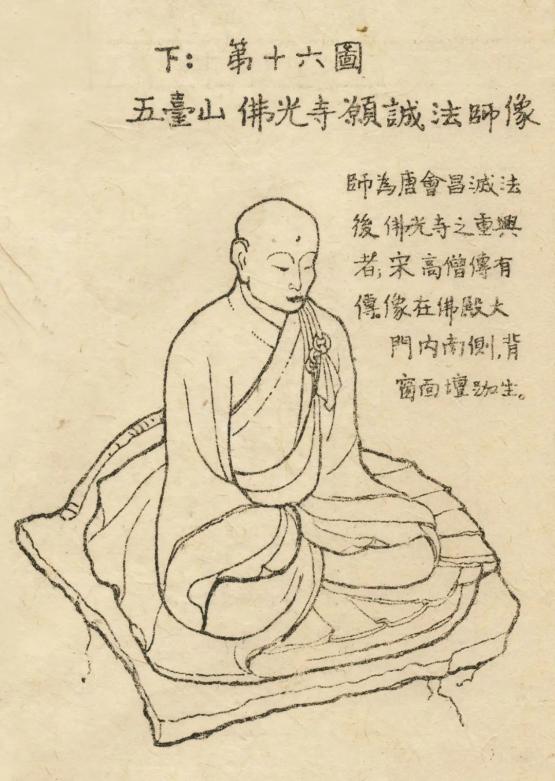 下：第十六圖
五臺山佛光寺願誠法師像
師為唐會昌滅法
後佛光寺之重興
者；宋高僧傳有
傳。像在佛殿大
門内南側，背
窗面壇趺坐。